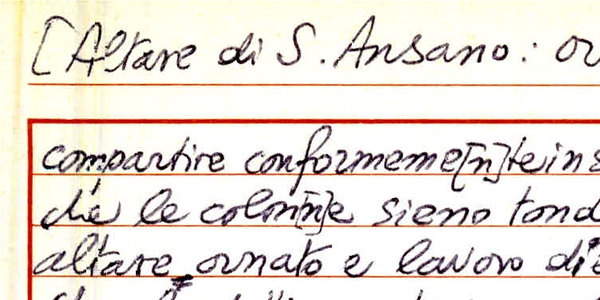 [Altare di S. Ansano: or
compartire conformeme[n]te ins
che le colon[n]e sieno tond
altare ornato e lavoro di